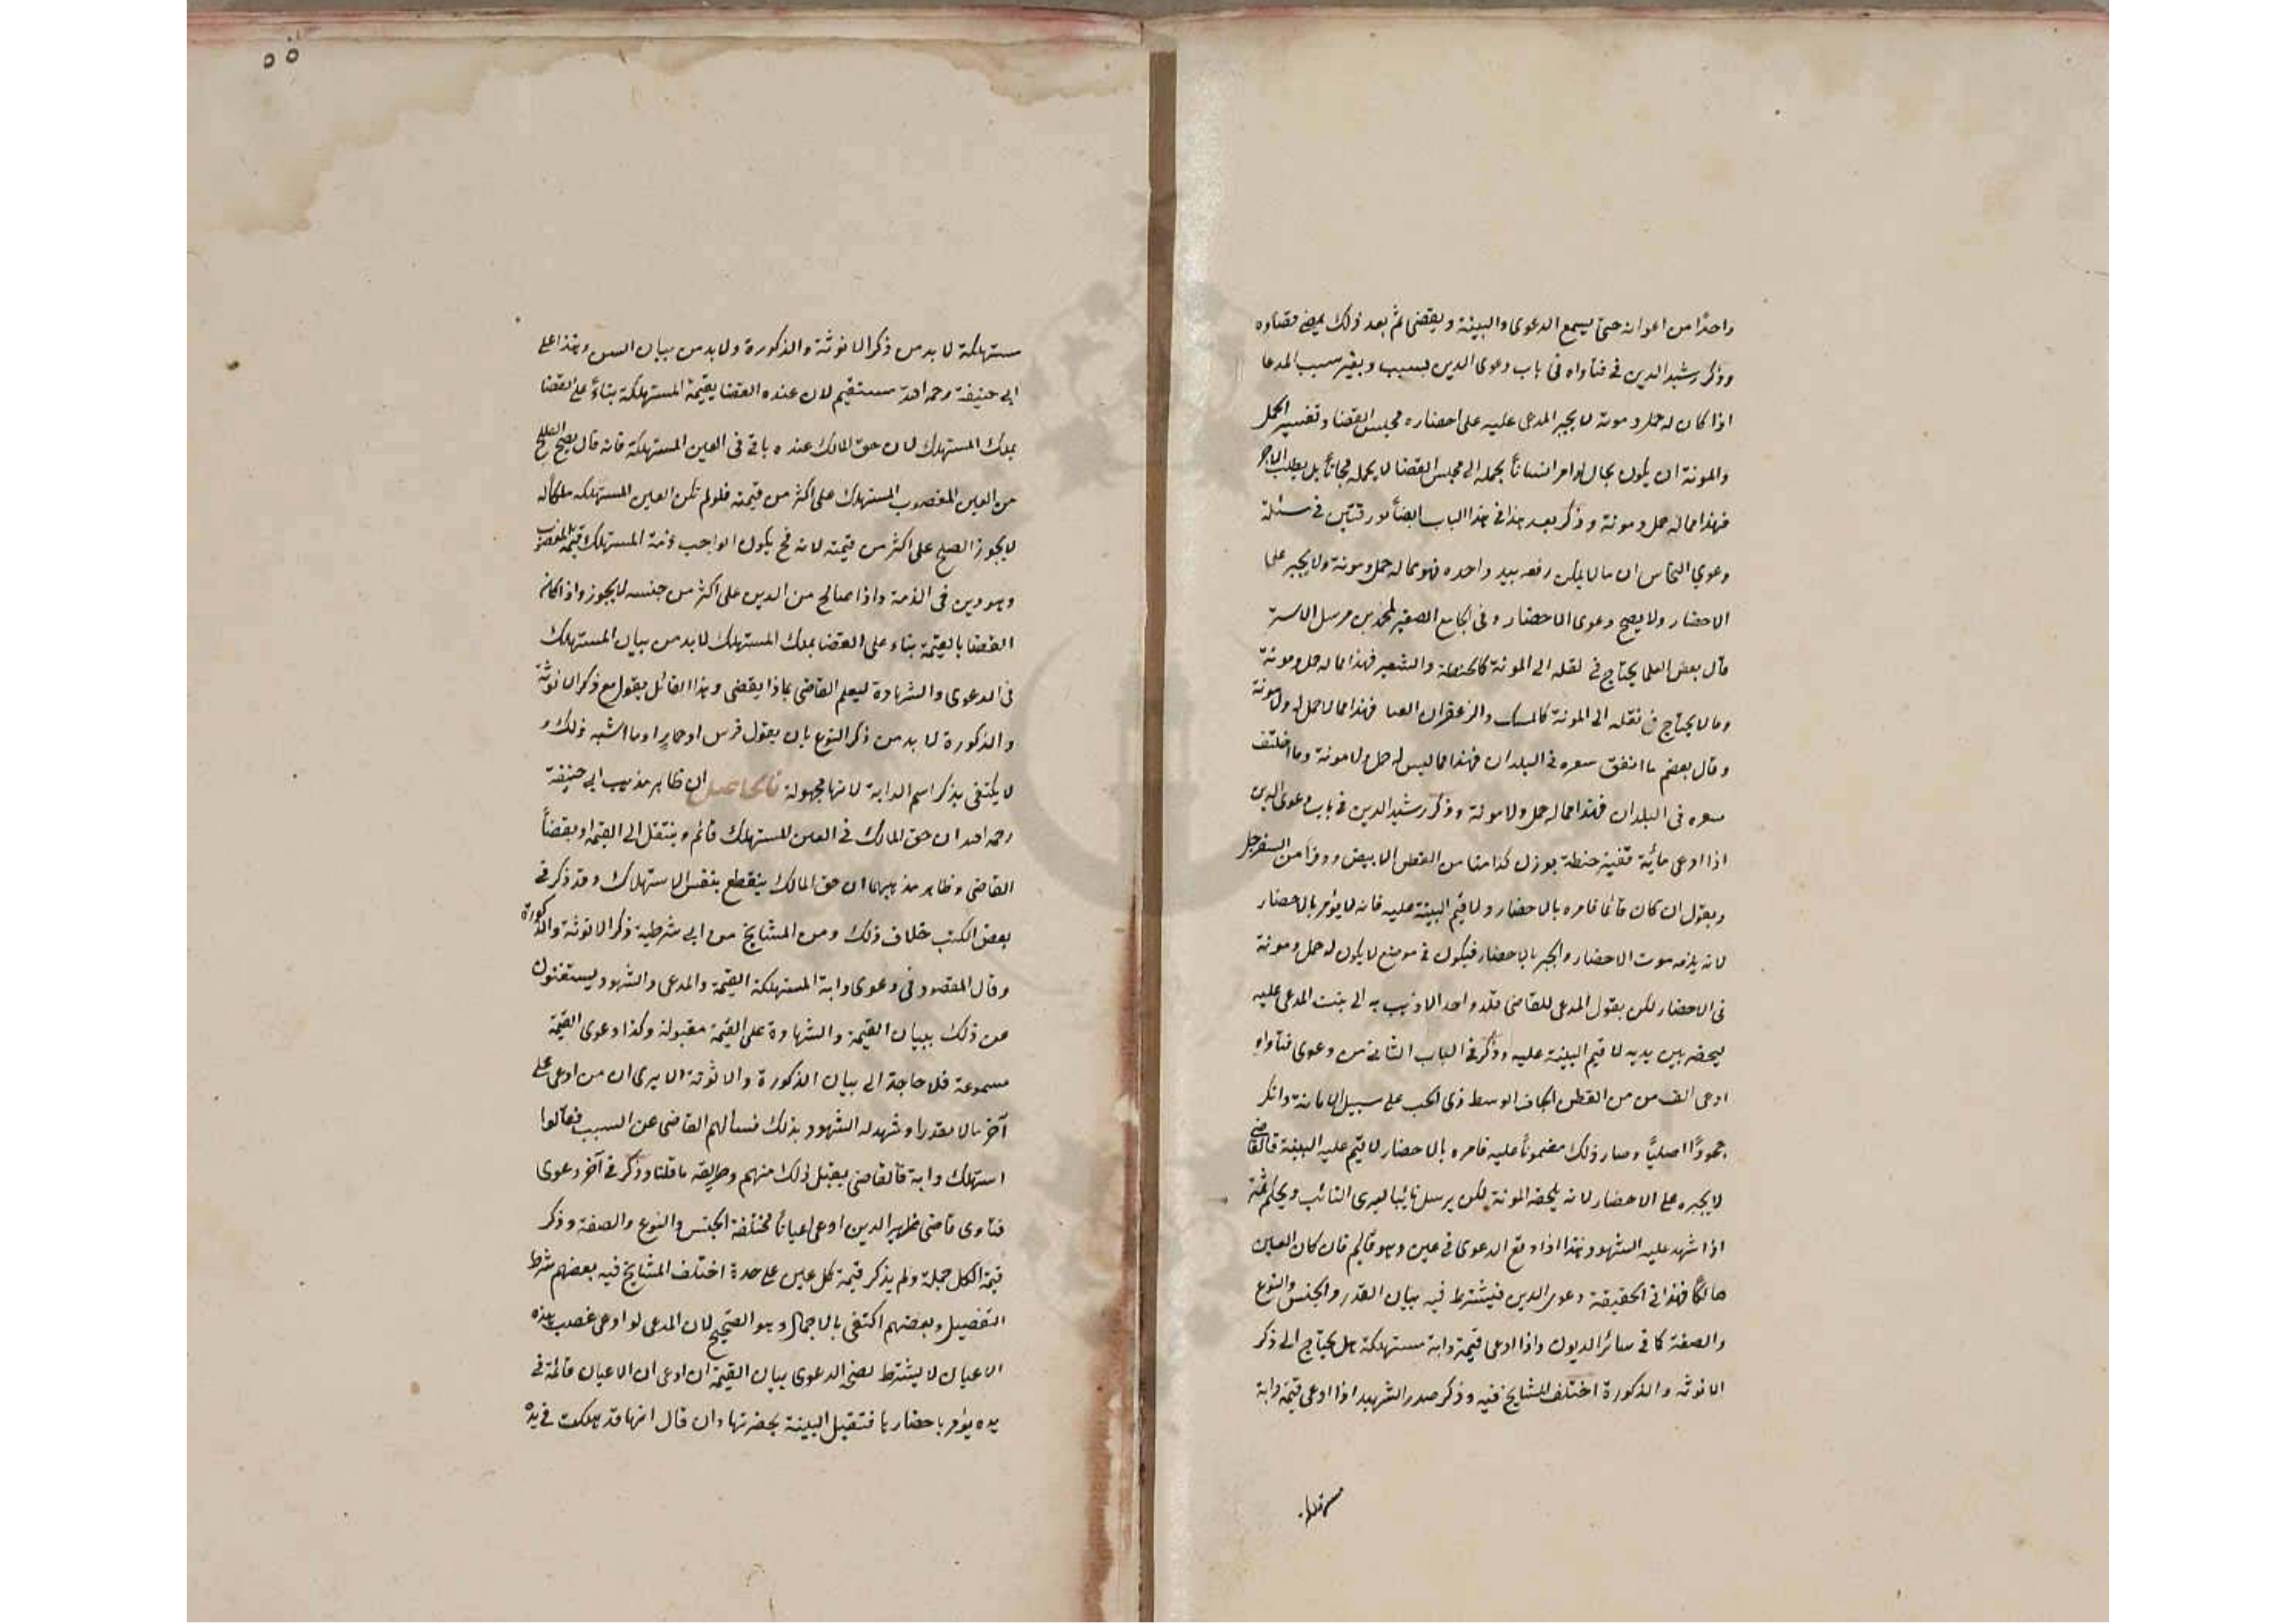 واحدًا من اعوانه حتى يسمع الدعوى والبينة ويقضى ثم بعد ذلك يمضى قضاؤه
وذكر رشيد الدين فى فتاواه فى باب دعوى الدين بسبب وبغير سبب المدعا
اذا كان له حمل ومونة لا يجبر المدعى عليه على احضاره مجلس القضا وتفسير الحمل
والمونة ان يكون بحال لو امر انسانًا بحمله الى مجلس القضا لا يحمله مجانًا بل يطلب الاجر
فهذا مما له حمل ومونة وذكر بعد هذا فى هذا الباب ايضًا بورقتين فى مسئلة
دعوي النحاس ان ما لا يمكن رفعه بيد واحده فهو مما له حمل ومونة ولا يجبر على
الاحضار ولا يصح دعوى الاحضار وفى الجامع الصغير لمحمد بن
قال بعض العلما يحتاج فى نقله الى المونة كالحنطة والشعير فهذا مما له حمل ومونة
وما لا يحتاج فى نقله الى المونة كالمسك والزعفران فهذا مما لا حمل له ولا مونة
وقال بعضهم ما اتفق سعره فى البلدان فهذا مما ليس له حمل ولا مونة وما اختلف
سعره فى البلدان فهذا مما له حمل ولا مونة وذكر رشيد الدين فى باب دعوى الدين
اذا ادعى مائة قفيز حنطة بوزن كذا منا من القطن الابيض ووقرا من السفرجل
ويقول ان كان قائما فامره بالاحضار ولا قيم البينة عليه فانه لا يؤمر بالاحضار
لانه يلزمه مونت الاحضار والجبر بالاحضار فيكون فى موضع لا يكون له حمل ومونة
فى الاحضار لكن يقول المدعى للقاضى واحد الاذهب به الى بيت المدعى عليه
ليحضر بين يديه لا قيم البينة عليه وذكر فى الباب الثانى من دعوى فتاواه
ادعى الف من من القطن الجاف الوسط ذى الحب على سبيل الامانة وانكر
جحودًا اصليًا وصار ذلك مضمونًا عليه فامره بالاحضار لا قيم عليه البينة فالقاضى
لا يجبره على الاحضار لانه يلحقه المونة لكن يرسل نايبا ليرى النائب ويحكم ثمة
اذا شهد عليه الشهود هذا اذا وقع الدعوى فى عين وهو قائم فان كان العين
هالكًا فهذا فى الحقيقة دعوى الدين فيشترط فيه بيان القدر والجنس والنوع
والصفة كما فى سائر الديون واذا ادعى قيمة دابة مستهلكة هل يحتاج الى ذكر
الانوثه والذكورة اختلف المشايخ فيه وذكر صدر الشهيد اذا ادعى قيمة دابة
مستهلكة
مستهلكة لا بد من ذكر الانوثة والذكورة ولا بد من بيان السن وهذا على
ابى حنيفة رحمه الله مستقيم لان عنده القضا بقيمة المستهلكة بناءً على القضا
بملك المستهلك لان حق المالك عنده باقٍ فى العين المستهلكة فانه قال يصح الصلح
من العين المغصوب المستهلك على اكثر من قيمته فلو لم تكن العين المستهلكه ملكا له
لا يجوز الصلح على اكثر من قيمته لانه فح يكون الواجب ذمة المستهلك قيمة المغصوب
وهو دين فى الذمة واذا صالح من الدين على اكثر من جنسه لا يجوز واذا كان
القضا بالقيمة بناء على القضا بملك المستهلك لا بد من بيان المستهلك
فى الدعوى والشهادة ليعلم القاضى بماذا يقضى وهذا القائل يقول مع ذكر الانوثة
والذكورة لا بد من ذكر النوع بان يقول فرس او حمار او ما اشبه ذلك و
لا يكتفى بذكر اسم الدابة لانها مجهولة فالحاصل ان ظاهر مذهب ابى حنيفة
رحمه الله ان حق المالك فى العين المستهلك قائم وينتقل الى القيمة او بقضاً
القاضى وظاهر مذهبهما ان حق المالك ينقطع بنفس الاستهلاك وقد ذكر فى
بعض الكتب خلاف ذلك ومن المشايخ من ابى شرطية ذكر الانوثة والذكورة
وقال المقصود فى دعوى دابة المستهلكة القيمة والمدعى والشهود يستغنون
عن ذلك ببيان القيمة والشهادة على القيمة مقبولة وكذا دعوى القيمة
مسموعة فلا حاجة الى بيان الذكورة والانوثة الا يرى ان من ادعى على
آخر مالا مقدرا وشهد له الشهود بذلك فسالهم القاضى عن السبب فقالوا
استهلك دابة فالقاضى يقبل ذلك منهم وطريقه ما قلنا وذكر فى آخر دعوى
فتاوى قاضى ظهير الدين ادعى اعيانًا مختلفة الجنس والنوع والصفة وذكر
قيمة الكل جملة ولم يذكر قيمة كل عين على حدة اختلف المشايخ فيه بعضهم شرط
التفصيل وبعضهم اكتفى بالاجمال وهو الصحيح لان المدعى لو ادعى غصب هذه
الاعيان لا يشترط لصحة الدعوى بيان القيمة ان ادعى ان الاعيان قائمة فى
يده يؤمر باحضارها فتقبل البينة بحضرتها وان قال انها قد هلكت فى يده